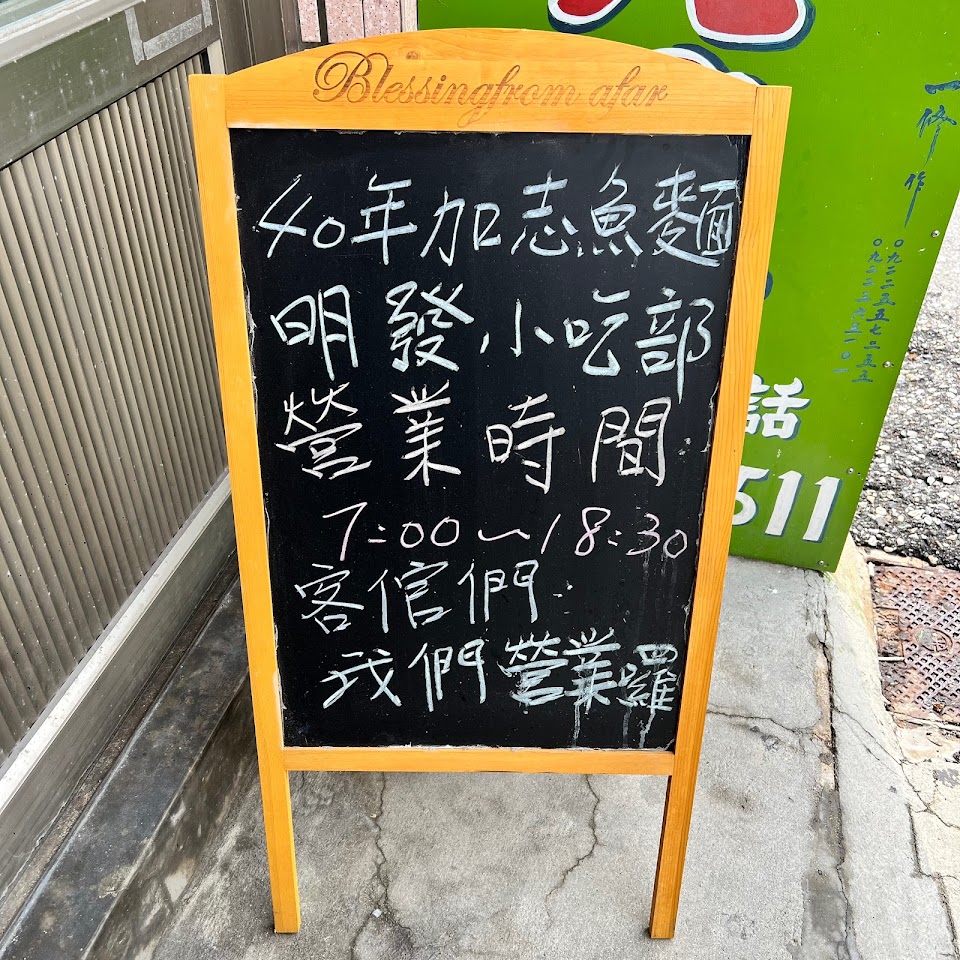 Blessingfrom afar
40年加志魚麵
明發小吃部
營業時間
7:00~18:30
客倌們
我們營業囉
一修作
〇九二二五五七二五五
話
511